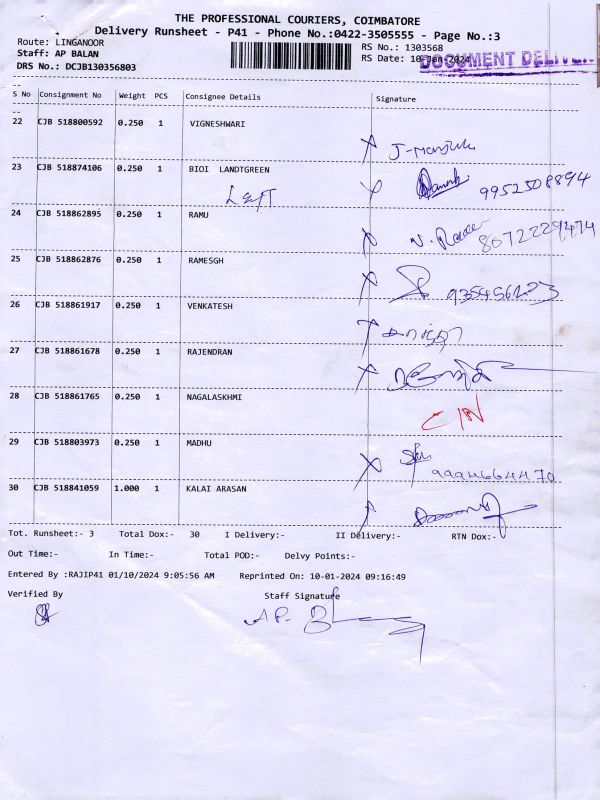 THE PROFESSIONAL COURIERS, COIMBATORE
Delivery Runsheet - P41 - Phone No.:0422-3505555 - Page No.:3
Route: LINGANOOR RS No.: 1303568
Staff: AP BALAN RS Date: 10-Jan-2024
DOCUMENT
DRS No.: DCJB130356803
S No Consignment No Weight PCS Consignee Details Signature
22 CJB 518800592 0.250 1 VIGNESHWARI
23 CJB 518874106 0.250 1 BIOI LANDTGREEN
9952508894
24 CJB 518862895 0.250 1 RAMU
8072229474
25 CJB 518862876 0.250 1 RAMESGH
26 CJB 518861917 0.250 1 VENKATESH
27 CJB 518861678 0.250 1 RAJENDRAN
28 CJB 518861765 0.250 1 NAGALASKHMI
29 CJB 518803973 0.250 1 MADHU
9994664470
30 CJB 518841059 1.000 1 KALAI ARASAN
Tot. Runsheet:- 3 Total Dox:- 30 I Delivery:- II Delivery:- RTN Dox:-
Out Time:- In Time:- Total POD:- Delvy Points:-
Entered By :RAJIP41 01/10/2024 9:05:56 AM Reprinted On: 10-01-2024 09:16:49
Verified By Staff Signature